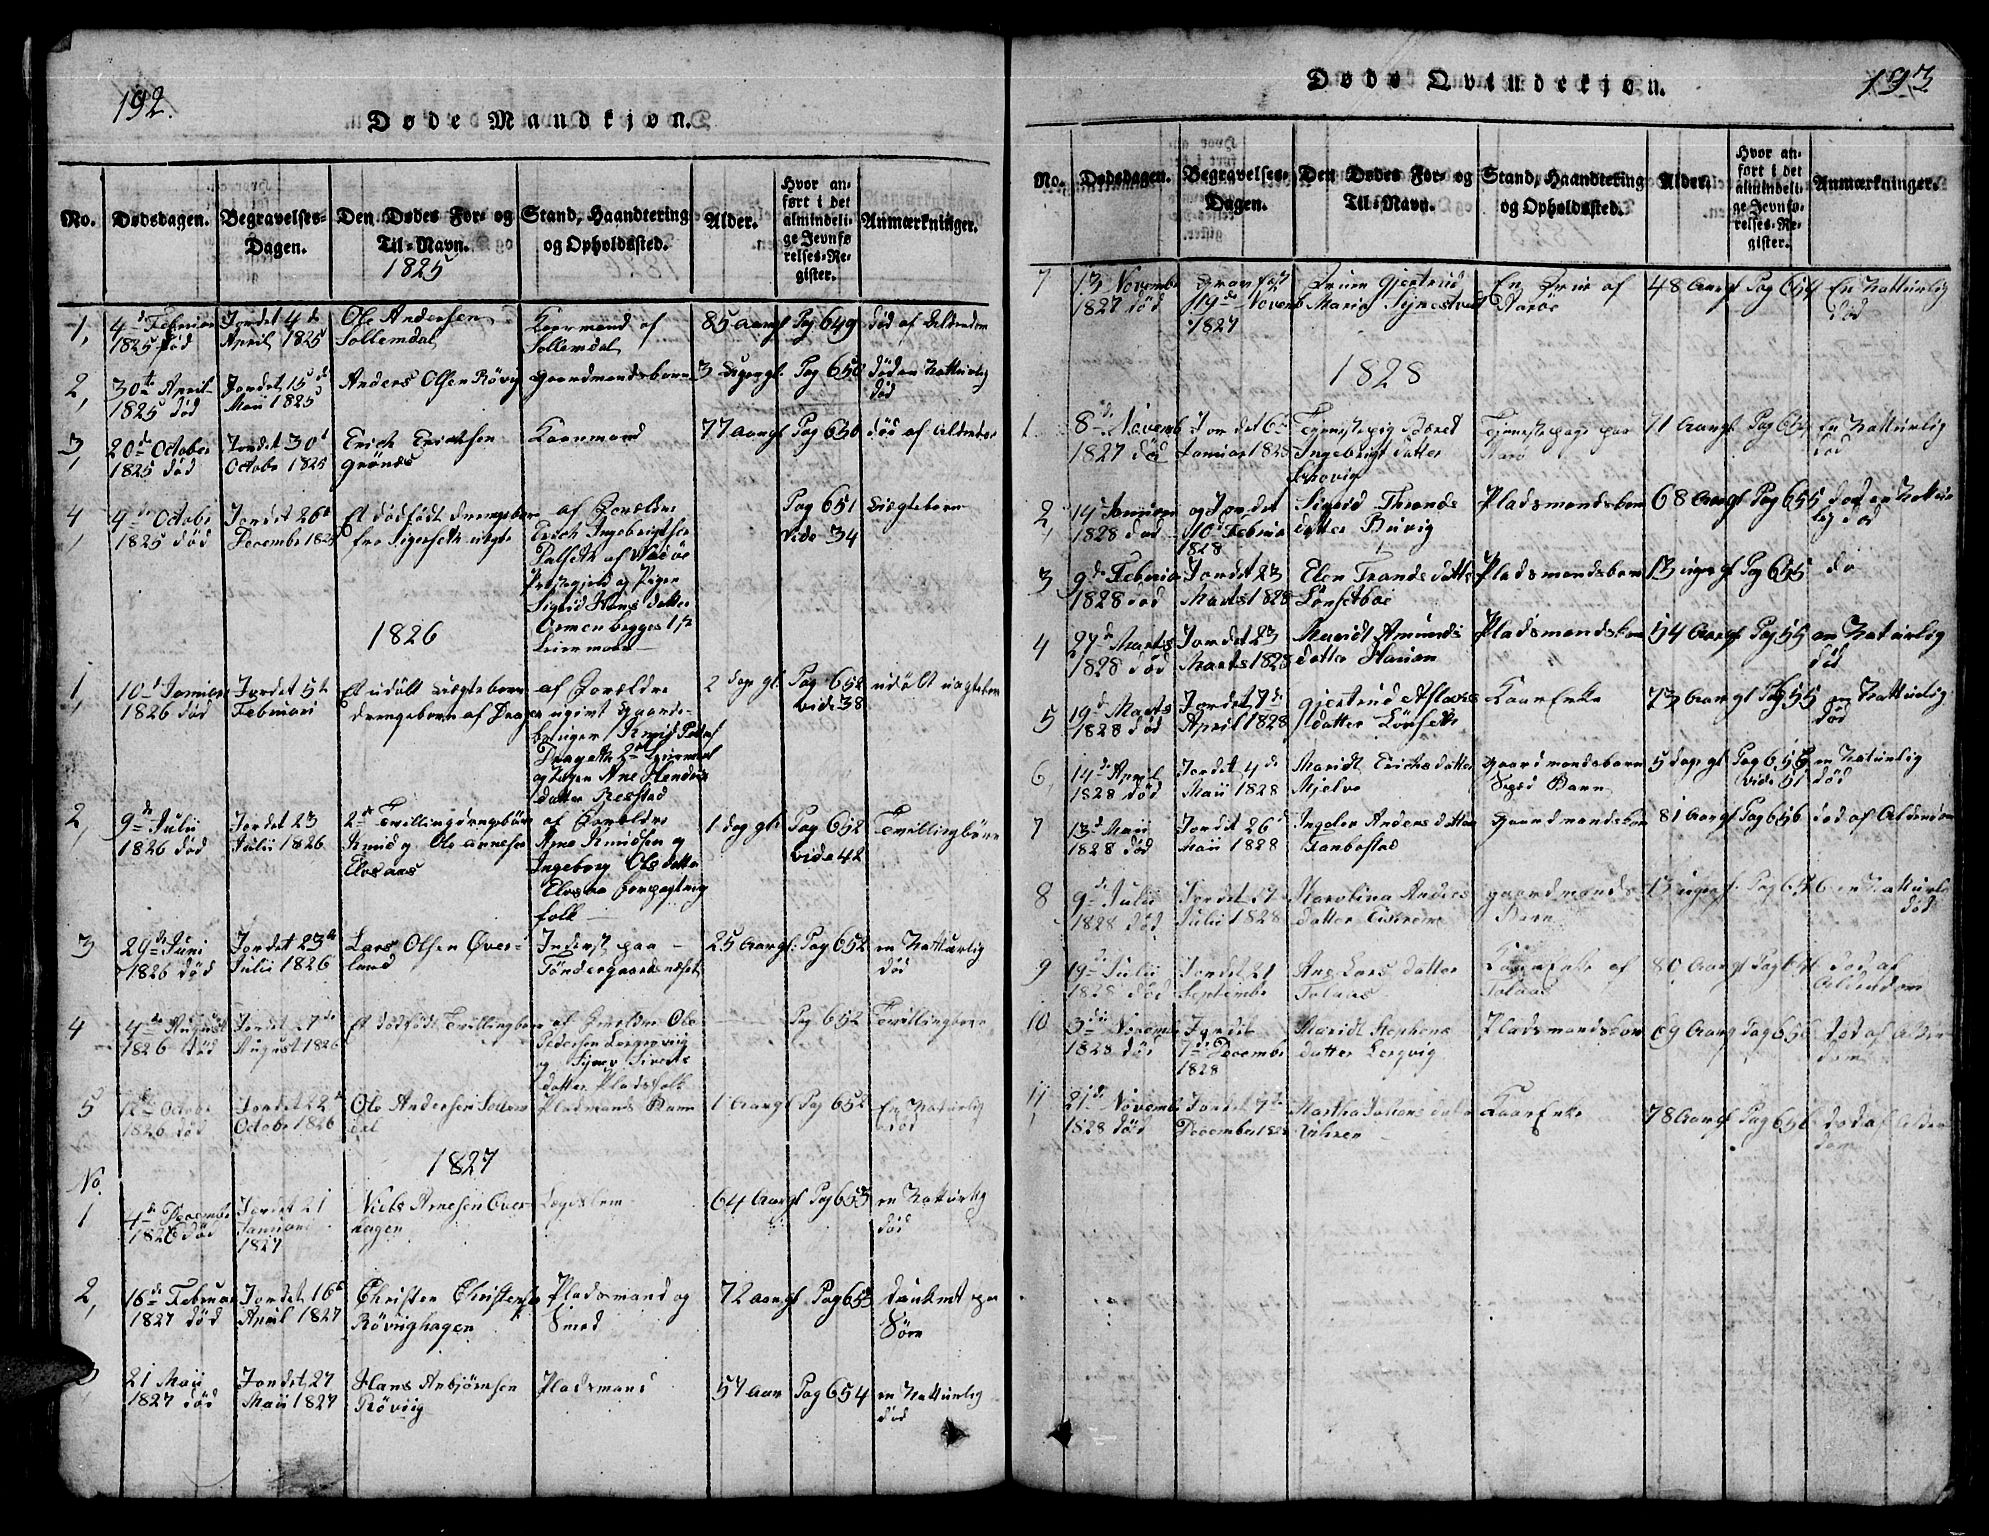 192.
Døde Mandkjøn.
No.
Dødsdagen.
Begravelses-
Dagen.
Den Dødes For- og
Til-Navn.
Stand, Haandtering
og Opholdssted.
Alder.
Hvor an-
ført i det
almindeli-
ge Jevnfø
relses-Re-
gister.
Anmærkninger.
1825
1,
4de Februar
1825 død
Jordet 4de
April 1825
Ole Andersen
Sollemdal
Kaarmand af
Sollemdal
85 aargl
Pag 649
død af Alderdom
2,
30te April
1825 død
Jordet 15de
Maii 1825
Anders Olsen Røvig
gaardmandsbarn
3 Uger gl
Pag 650
død en Naturlig
død
3,
20de October
1825 død
Jordet 30te
Octobr 1825
Erich Erichsen
Grønæs
Kaarmand
77 aargl
Pag 650
død af Alderdom
4,
9de Octobr
1825 død
Jordet 26de
December 1825
Et dødfødt drengebarn
fra Sigerseth uægte
af Forældre
Erich Ingebrigtsen
Præstegjeld og Pigen
Sigrid Hans datter
begges 1ste
Leiermaal
Pag 651
vide 34
Uægtebarn
1826
1,
10de Januari
1826 død
Jordet 5te
Februari
Et udøbt Uægtebarn
drengebarn af
af Forældre
ugivt Gaards-
2det Leiermaal
og Pigen Ane Hendrics
datter Ræstad
2 dage gl
Pag 652
vide 38
udøbt uægtebarn
2,
9de Julii
1826 død
Jordet 23
Julii 1826
2de Tvillingdrengebørn
Knud og Ole Arnesen
Elvsaas
af Forældre
Arne Knudsen og
Ingeborg Olsdatter
Elvsaa Forpagtning
folk
1 dag gl:
Pag 652
vide 42
Tvillingbørn
3
29de Juni
1826 død
Jordet 23de
Julii 1826
Lars Olsen Øver-
land
Inderst paa
Tøndergaardsnæset
25 Aargl:
Pag 652
en Naturlig
død
4
4de August
1826 død
Jordet 27de
August 1826
Et dødfødt Tvillingbarn
af Forældre Ole
Pedersen Lergrovvig
og Synnev Siverts
datter Pladsfolk
Pag 652
Tvillingbarn
5
12te Octobr
1826 død
Jordet 22de
Octobr 1826
Ole Andersen Sollem
dal
Pladsmands Barn
1 Aargl
Pag 652
En Naturlig
død
1827
No.
1
4de Decembr
1826 død
Jordet 21
Januari
1827
Niels Arnesen Over-
hagen
Lægdslem
64 Aargl
Pag 653
en Naturlig
død
2,
16de Februar
1827 død
Jordet 16de
April 1827
Christen Christensen
Røvighagen
Pladsmand og
Smed
72 aargl
Pag 653
druknet paa
Søen
21 Maii
1827 død
Jordet 27
Maii 1827
Hans Anbjørnsen
Røviig
Pladsmand
57 Aar
Pag 654
en Naturlig
død
193.
Døde Qvindekjøn.
No.
Dødsdagen.
Begravelses-
Dagen.
Den Dødes For- og
Til-Navn.
Stand, Haandtering
og Opholdssted.
Alder.
Hvor an-
ført i det
almindeli-
ge Jevnfø-
relses-Re-
gister.
Anmærkninger.
7
13de Novembr
1827 død
Gravfæst
19de Novemb
1827
Fruen Gjertrud
Maria
En Frue af
Aarøe
48 Aargl
Pag 654
En Naturlig
død
1828
1.
8de Novemb
1827 død
Jordet 6te
Januar 1828
Tjenestepig
Ingebrigt datter
Tjenestepige paa
Aarø
71 Aargl
Pag 654
En Naturlig
død
2,
14de Januar
1828 død
og Jordet
10de Februar
1828
Sigrid Thrands
datter
Pladsmandskone
68 Aargl
Pag 655
død en Natur
lig død
3
9de Februar
1828 død
Jordet 23
Marts 1828
Elen Trands datter
Lønsetbøe
Pladsmandsbarn
13 uger gl
Pag 655
do
4
27de Marts
1828 død
Jordet 23
Marts 1828
Maridt Amunds
datter Hauen
Pladsmandskone
54 Aargl
Pag 655
en Naturlig
død
5
19de Marts
1828 død
Jordet 7de
April 1828
Gjertrud Aslaks
datter Lønseth
KaarEnke
73 Aargl
Pag 655
en Naturlig
død
6,
14de April
1828 død
Jordet 4de
Maii 1828
Maridt Erichs datter
Mjelve
gaardmandsbarn
Barn
5 dage gl
Pag 656
vide 51
en Naturlig
død
7
13de Maii
1828 død
Jordet 26de
Maii 1828
Ingeler Anders datter
gaardmandskone
81 Aargl
Pag 656
død af Alderdom
8
9de Julii
1828 død
Jordet 27
Julii 1828
Karolina Anders
datter
gaardmands
Barn
13 uger gl.
Pag 656
en Naturlig
død
9
19de Julii
1828 død
Jordet 21
Septembr
Ane Lars datter
Tolaas
KaarEnke af
Tolaas
80 Aargl
død af
Alderdom
10
3die Novemb
1828 død
Jordet
7de Decembr
1828
Maridt Stephens
datter Lergrvig
Pladsmandskone
69 Aargl
Pag 656
død af Alder-
dom
11
21de Novemb
1828 død
Jordet 7de
December 1828
Martha Johans datter
KaarEnke
78 Aargl
Pag 656
død af Alder
dom